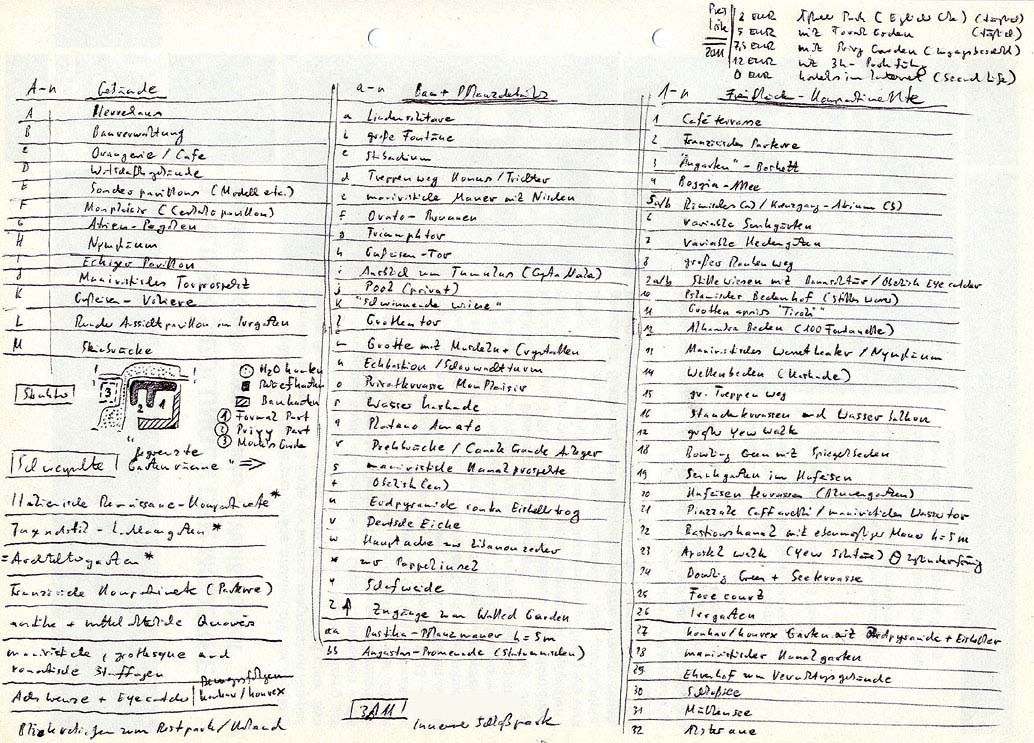 Preis
liste
2011
2 EUR (täglich)
5 EUR mit Formal Garden (täglich)
7,5 EUR mit Privy Garden
12 EUR mit 3h - Parkführung
0 EUR kostenlos im Internet (Second Life)
A-n Gebäude
A Herrenhaus
B Bauverwaltung
C Orangerie / Cafe
D Wirtschaftsgebäude
E Sonderpavillons (Modell etc.)
F Monplaisir (Centralpavillon)
G Atrien-Pagoden
H Nymphäum
I Eckiger Pavillon
J Manieristisches Torprospekt
K Gußeisen - Voliere
L Runder Aussichtpavillon im Irrgarten
M Steinbrücke
Struktur
3
2
1
H2O kanten
Reliefkanten
Baukanten
1 Formal Part
2 Privy Part
3
Schwerpunkte
" begrenzte
Gartenräume " =>
Italienische Renaissance-Kompartimente *
Jugendstil - garten *
= Architektgarten *
Französische Kompartimente (Parterre)
antike + mittelalterliche
manieristische, groteske und
romantische Staffagen
Achskreuze + Eyecatcher
Bewegungsfolgen
konkav/konvex
Blickbeziehungen zum Restpark / Umland
a-n Bau + Pflanzdetails
a Lindensolitäre
b große Fontäne
c Stibadium
d Treppenweg Konus / Trichter
e manieristische Mauer mit Nischen
f Ovato - Brunnen
g Triumphtor
h Gußeisen-Tor
i Ausblick zum Tumulus
j Pool (privat)
K "schwimmende Wiese"
l Grottentor
m Grotte mit Muscheln + Crystallen
n Eckbastion / Schauwachtturm
o Privatterrasse Monplaisir
p Wasserkaskade
q Platano Amato
r Drehbrücke / Canale Grande Anleger
s manieristische Kanalprospekte
t Obelisk(en)
u Erdpyramide contra Eiskellertrog
v Deutsche Eiche
w Hauptachse zur Libanonzeder
x zur Pappelinsel
y Schafweide
z Zugänge zum Walled Garden
aa Rustika-Pflanzmauer h = 5m
bb Augustus-Promenade (Statuennischen)
3AM
innerer Schloßpark
1-n Freifläche - Kompartimente
1 Caféterrasse
2 Französisches Parterre
3 "Augarten" - Boskett
4 Allee
5a/b Römisches (a) / Kreuzgang-Atrium (b)
6 variable Senkgärten
7 variable Heckengärten
8 großer Rautenweg
9a/b Stillewiesen mit / Obelisk Eyecatcher
10 Islamischer Beckenhof (stilles Wasser)
11 Grotten aperiss "Tivoli"
12 Alhambra Becken (100 Fontanelle)
13 Manieristisches Wassertheater / Nymphäum
14 Wellenbecken (Kaskade)
15 gr. Treppenweg
16 Staudenterrassen und Wasserbalkon
17 großer Yew Walk
18 Bowling Green mit Spiegelbecken
19 Senkgarten im Hufeisen
20 Hufeisenterrassen (Blumengarten)
21 Piazzale Caffarelli / manieristisches Wassertor
22 Bastionskanal mit ebenmäßiger Mauer h = 5m
23 Apostel Walk (Yew Schnitt) zylinderförmig
24 Bowling Green + Seeterrasse
25 Fore court
26 Irrgarten
27 konkav/konvex Garten mit Erdpyramide + Eiskeller
28 manieristischer Kanalgarten
29 Ehrenhof zum Verwaltungsgebäude
30 Schloßsee
31 Mühlensee
32 Alsteraue